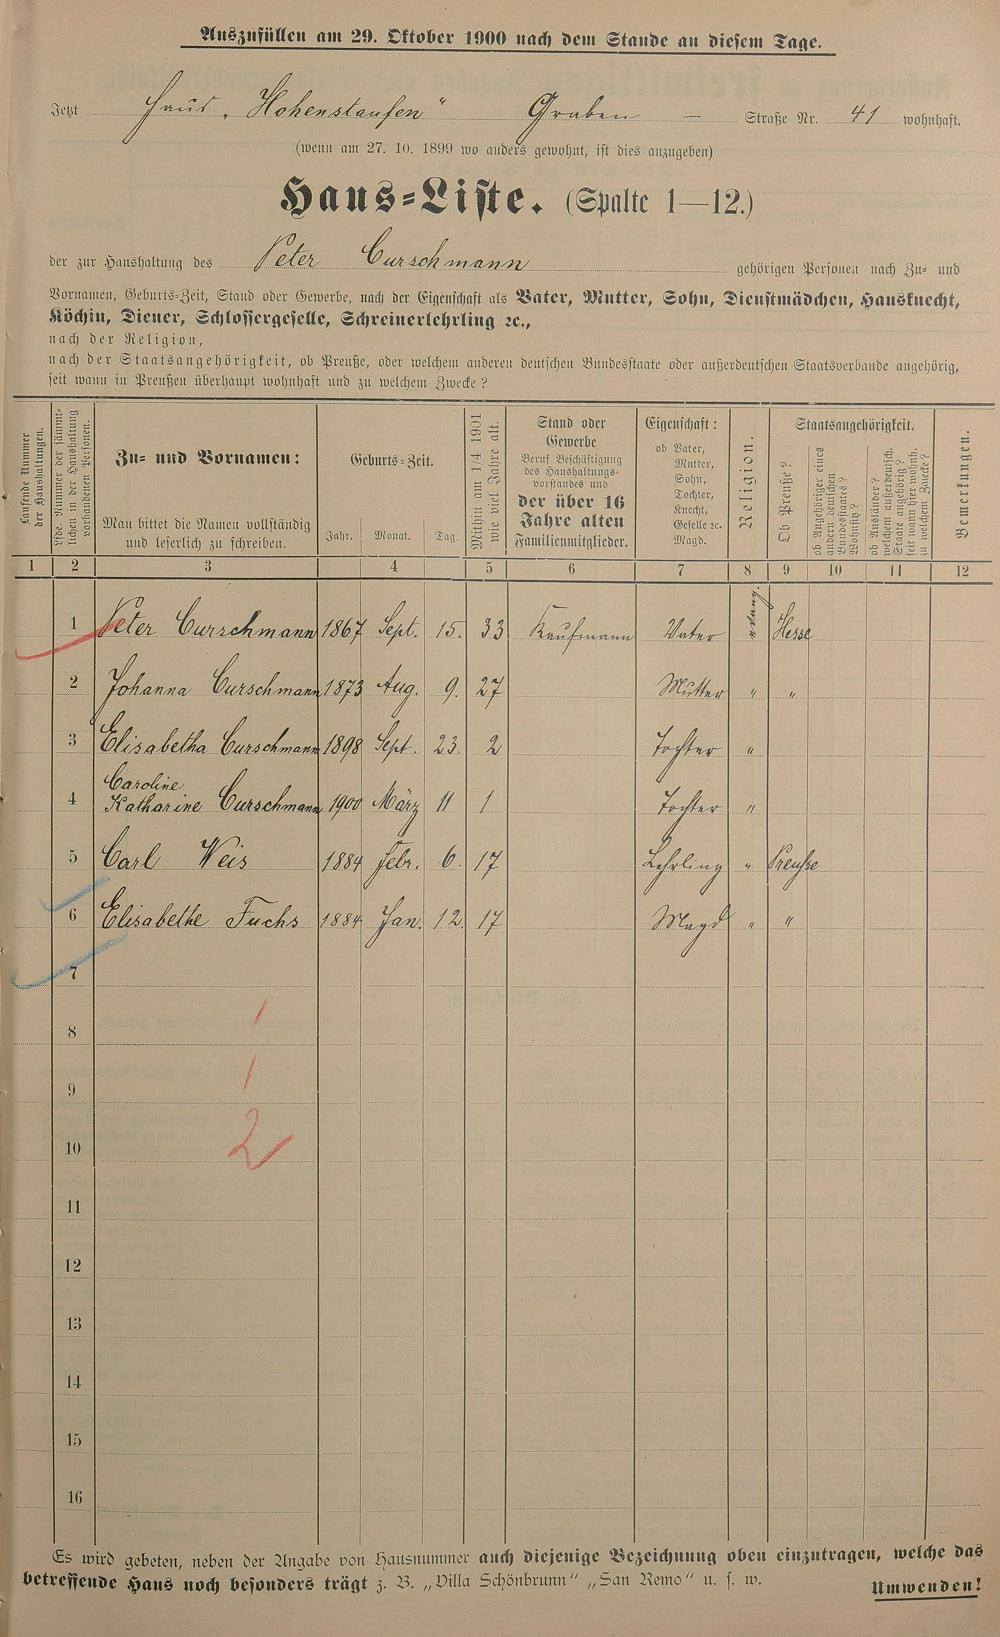 Auszufüllen am 29. Oktober 1900 nach dem Stande an diesem Tage.
Jetzt Haus „Hohenstaufen“ Graben – Straße Nr. 41 wohnhaft.
(wenn am 27. 10. 1899 wo anders gewohnt, ist dies anzugeben)
Haus-Liste. (Spalte 1—12.)
der zur Haushaltung des Peter Curschmann gehörigen Personen nach Zu- und
Vornamen, Geburts-Zeit, Stand oder Gewerbe, nach der Eigenschaft als Vater, Mutter, Sohn, Dienstmädchen, Hausknecht,
Köchin, Diener, Schlossergeselle, Schreinerlehrling ꝛc.,
nach der Religion,
nach der Staatsangehörigkeit, ob Preuße, oder welchem anderen deutschen Bundesstaate oder außerdeutschen Staatsverbande angehörig,
seit wann in Preußen überhaupt wohnhaft und zu welchem Zwecke?
Laufende Nummer
der Haushaltungen.
Lfde. Nummer der sämmt-
lichen in der Haushaltung
vorhandenen Personen.
Zu- und Vornamen:
Man bittet die Namen vollständig
und leserlich zu schreiben.
Geburts-Zeit.
Jahr. Monat. Tag.
Mithin am 1/4 1901
wie viel Jahre alt.
Stand oder
Gewerbe
Beruf Beschäftigung
des Haushaltungs-
vorstandes und
der über 16
Jahre alten
Familienmitglieder.
Eigenschaft:
ob Vater,
Mutter,
Sohn,
Tochter,
Knecht,
Geselle ꝛc.
Magd.
Religion.
Staatsangehörigkeit.
Ob Preuße?
ob Angehöriger eines
andern deutschen
Bundesstaates?
Wohnsitz?
ob Ausländer?
welchem außerdeutsch.
Staate angehörig?
seit wann hier wohnh.
zu welchem Zwecke?
Bemerkungen.
1 2 3 4 5 6 7 8 9 10 11 12
1 Peter Curschmann 1867 Sept. 15. 33 Kaufmann Vater evang. Hesse
2 Johanna Curschmann 1873 Aug. 9. 27 Mutter „ „
3 Elisabetha Curschmann 1898 Sept. 23 2 Tochter „
Caroline
4 Katharine Curschmann 1900 März 11 1 Tochter „
5 Carl Weis 1884 Febr. 6. 17 Lehrling „ Preuße
6 Elisabethe Fuchs 1884 Jan. 12. 17 Magd „ „
7
1
8
1
9
2
10
11
12
13
14
15
16
Es wird gebeten, neben der Angabe von Hausnummer auch diejenige Bezeichnung oben einzutragen, welche das
betreffende Haus noch besonders trägt z. B. „Villa Schönbrunn“ „San Remo“ u. s. w.
Umwenden!